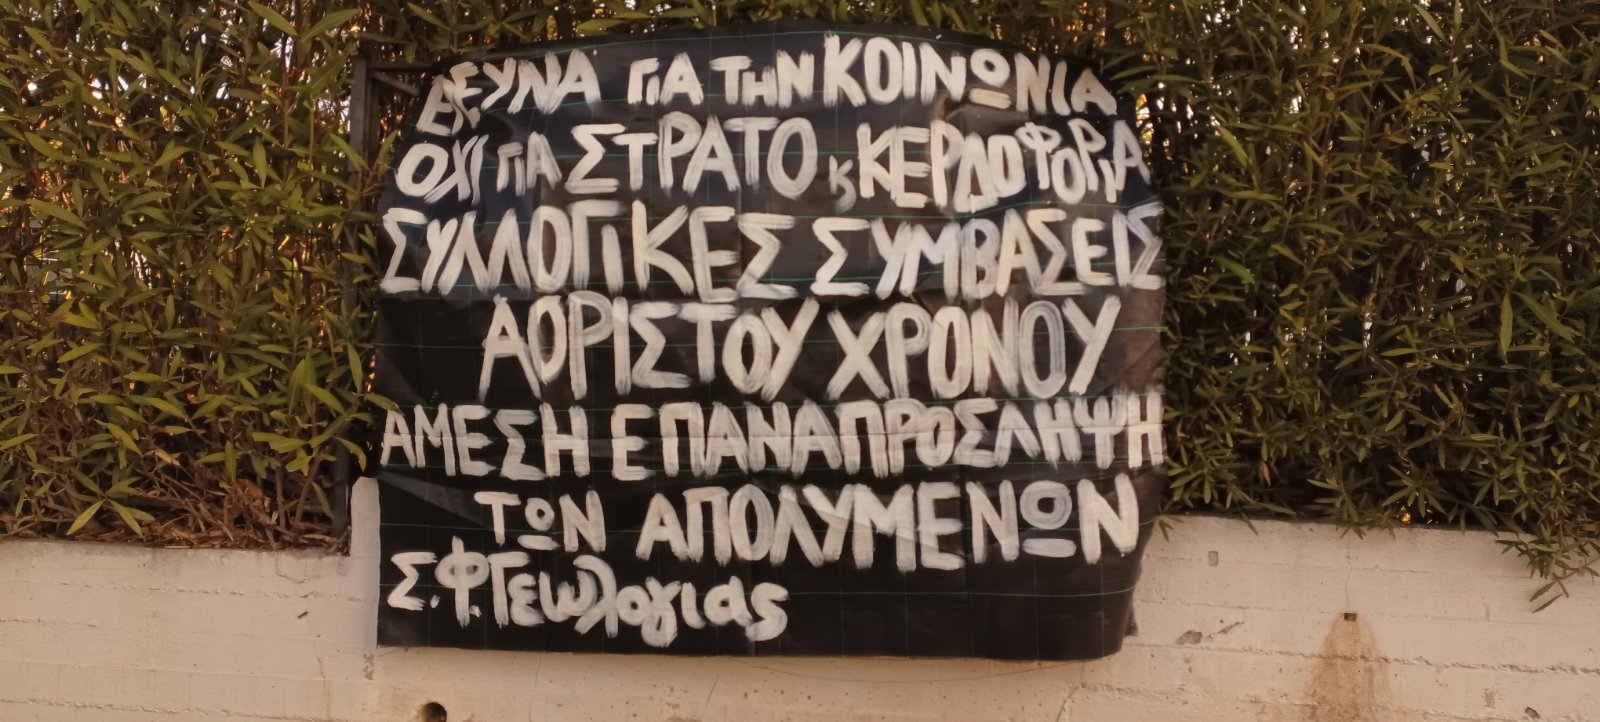 ΕΡΕΥΝΑ ΓΙΑ ΤΗΝ ΚΟΙΝΩΝΙΑ
ΟΧΙ ΓΙΑ ΣΤΡΑΤΟ κ ΚΕΡΔΟΦΟΡΙΑ
ΣΥΛΛΟΓΙΚΕΣ ΣΥΜΒΑΣΕΙΣ
ΑΟΡΙΣΤΟΥ ΧΡΟΝΟΥ
ΑΜΕΣΗ ΕΠΑΝΑΠΡΟΣΛΗΨΗ
ΤΩΝ ΑΠΟΛΥΜΕΝΩΝ
Σ.Φ. Γεωλογιας